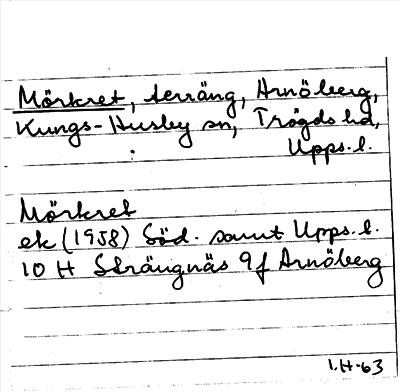 Mörkret, terräng, Arnöberg,
Kungs-Husby sn, Trögds hd,
Upps. l.
Mörkret
ek (1958) Söd. samt Upps. l.
10 H Strängnäs 9f Arnöberg
I.H-63